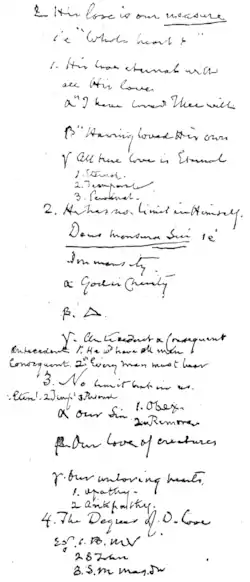 2. His love is our measure
i'e "Whole heart & "
1. His love eternal with
all His love
α "I have loved Thee with
β "Having loved His own
γ All true love is Eternal
1. Eternal.
2. Temporal
3. Perpetual.
2. He has no limit in Himself.
Deus mensura Sui i'e
Immensity.
α God is Charity
β. Δ.
γ. Antecedent & Consequent
Antecedent 1. He have all men
Consequent 2. Every man must hear
3. No limit but in us.
α Our Sin 1. Obex
2. Remove
β. Our love of creatures
γ. Our unloving hearts.
1. apathy.
2. Antipathy.
4. The Degrees of D. Love
Eg. 1. B. M. V
2. S. John
3. S. M. Mag.